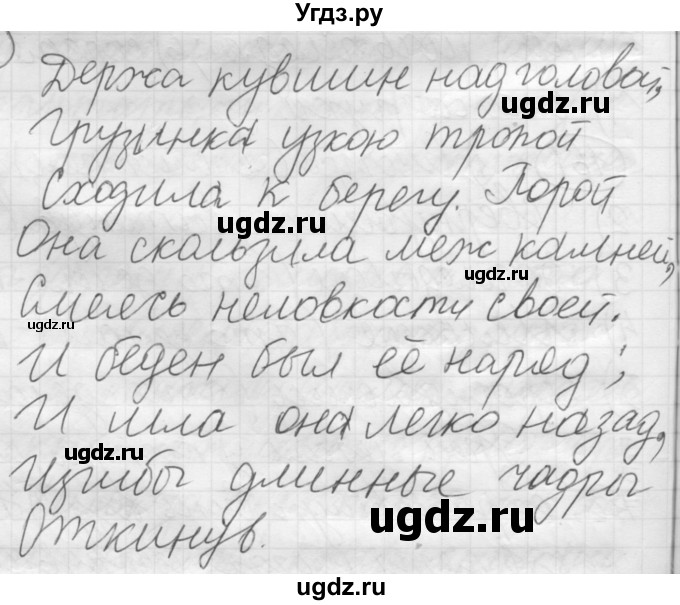 Угдз.ру
Держа кувшин над головой,
ugdz.ru
Грузинка узкою тропой
ugdz.ru
Сходила к берегу. Порой
ugdz.ru
Она скользила меж камней,
ugdz.ru
Смеясь неловкости своей.
ugdz.ru
И беден был её наряд;
И шла она легко назад,
ugdz.ru
Изгибы длинные чадры
ugdz.ru
Откинув.
ugdz.ru